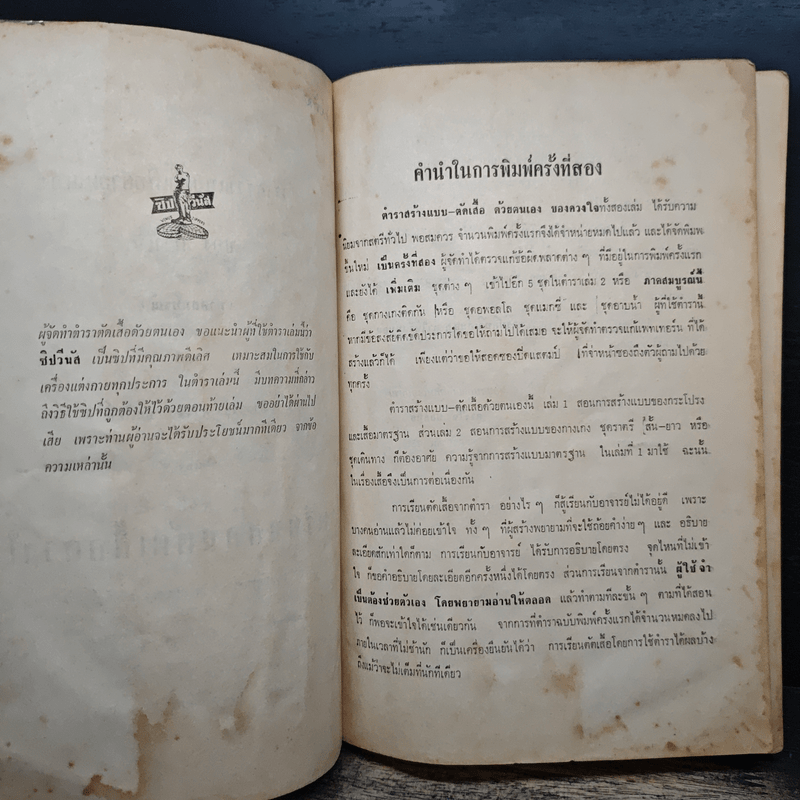 ซิปวีนัส
ผู้จัดทำตำราตัดเสื้อด้วยตนเอง ขอแนะนำผู้ที่ใช้ตำราเล่มนี้ว่า
ซิปวีนัส เป็นซิปที่มีคุณภาพดีเลิศ เหมาะสมในการใช้กับ
เครื่องแต่งกายทุกประการ ในตำราเล่มนี้ มีบทความที่กล่าว
ถึงวิธีใช้ซิปที่ถูกต้องให้ไว้ด้วยตอนท้ายเล่ม ขออย่าได้ผ่านไป
เสีย เพราะท่านผู้อ่านจะได้รับประโยชน์มากทีเดียว จากข้อ
ความเหล่านั้น
คำนำในการพิมพ์ครั้งที่สอง
ตำราสร้างแบบ–ตัดเสื้อ ด้วยตนเอง ของดวงใจทั้งสองเล่ม ได้รับความ
นิยมจากสตรีทั่วไป พอสมควร จำนวนพิมพ์ครั้งแรกจึงได้จำหน่ายหมดไปแล้ว และได้จัดพิมพ์
ขึ้นใหม่ เป็นครั้งที่สอง ผู้จัดทำได้ตรวจแก้ข้อผิดพลาดต่าง ๆ ที่มีอยู่ในการพิมพ์ครั้งแรก
และยังได้ เพิ่มเติม ชุดต่าง ๆ เข้าไปอีก 5 ชุดในตำราเล่ม 2 หรือ ภาคสมบูรณ์นี้
คือ ชุดกางเกงติดกัน หรือ ชุดอพอลโล ชุดแมกซี่ และ ชุดอาบน้ำ ผู้ที่ใช้ตำรานี้
หากมีข้อสงสัยติดขัดประการใดขอให้ถามไปได้เสมอ จะให้ผู้จัดทำตรวจแก้แพทเทอร์น ที่ได้
สร้างแล้วก็ได้ เพียงแต่ว่าขอให้สอดซองปิดแสตมป์ ที่จ่าหน้าซองถึงตัวผู้ถามไปด้วย
ทุกครั้ง
ตำราสร้างแบบ–ตัดเสื้อด้วยตนเองนี้ เล่ม 1 สอนการสร้างแบบของกระโปรง
และเสื้อมาตรฐาน ส่วนเล่ม 2 สอนการสร้างแบบของกางเกง ชุดราตรี สั้น-ยาว หรือ
ชุดเดินทาง ก็ต้องอาศัย ความรู้จากการสร้างแบบมาตรฐาน ในเล่มที่ 1 มาใช้ ฉะนั้น
ในเรื่องเสื้อจึงเป็นการต่อเนื่องกัน
การเรียนตัดเสื้อจากตำรา อย่างไร ๆ ก็สู้เรียนกับอาจารย์ไม่ได้อยู่ดี เพราะ
บางคนอ่านแล้วไม่ค่อยเข้าใจ ทั้ง ๆ ที่ผู้สร้างพยายามที่จะใช้ถ้อยคำง่าย ๆ และ อธิบาย
ละเอียดสักเท่าใดก็ตาม การเรียนกับอาจารย์ ได้รับการอธิบายโดยตรง จุดไหนที่ไม่เข้า
ใจ ก็ขอคำอธิบายโดยละเอียดอีกครั้งหนึ่งได้โดยตรง ส่วนการเรียนจากตำรานั้น ผู้ใช้จำ
เป็นต้องช่วยตัวเอง โดยพยายามอ่านให้ตลอด แล้วทำตามทีละขั้น ๆ ตามที่ได้สอน
ไว้ ก็พอจะเข้าใจได้เช่นเดียวกัน จากการที่ตำราฉบับพิมพ์ครั้งแรกได้จำนวนหมดลงไป
ภายในเวลาที่ไม่ช้านัก ก็เป็นเครื่องยืนยันได้ว่า การเรียนตัดเสื้อโดยการใช้ตำราได้ผลบ้าง
ถึงแม้ว่าจะไม่เต็มที่นักทีเดียว